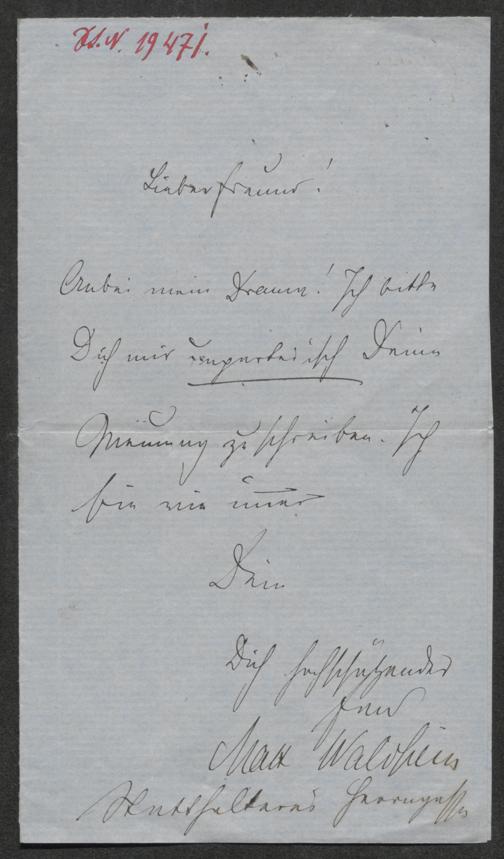 H.I.N. 19471.
Lieber Freund!
Anbei mein Drama! Ich bitte
Dich mir unparteiisch Deine
Meinung zu schreiben. Ich
bin wie immer
Dein
Dich hochschätzender
Max Waldstein
Statthalterei Herrengasse